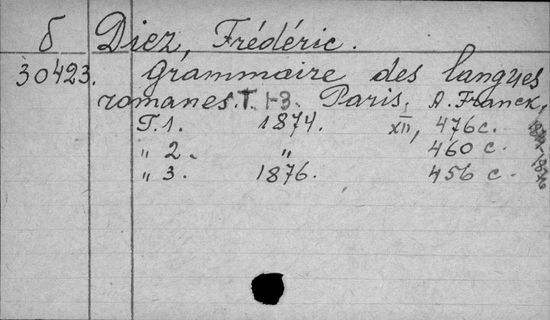 б Diez, Frédéric.
30423. Grammaire des langues
romanes. T. 1-3. Paris, A. Franck,
T. 1. 1874. XII, 476 c.
„ 2. „ 460 c.
„ 3. 1876. 456 c.